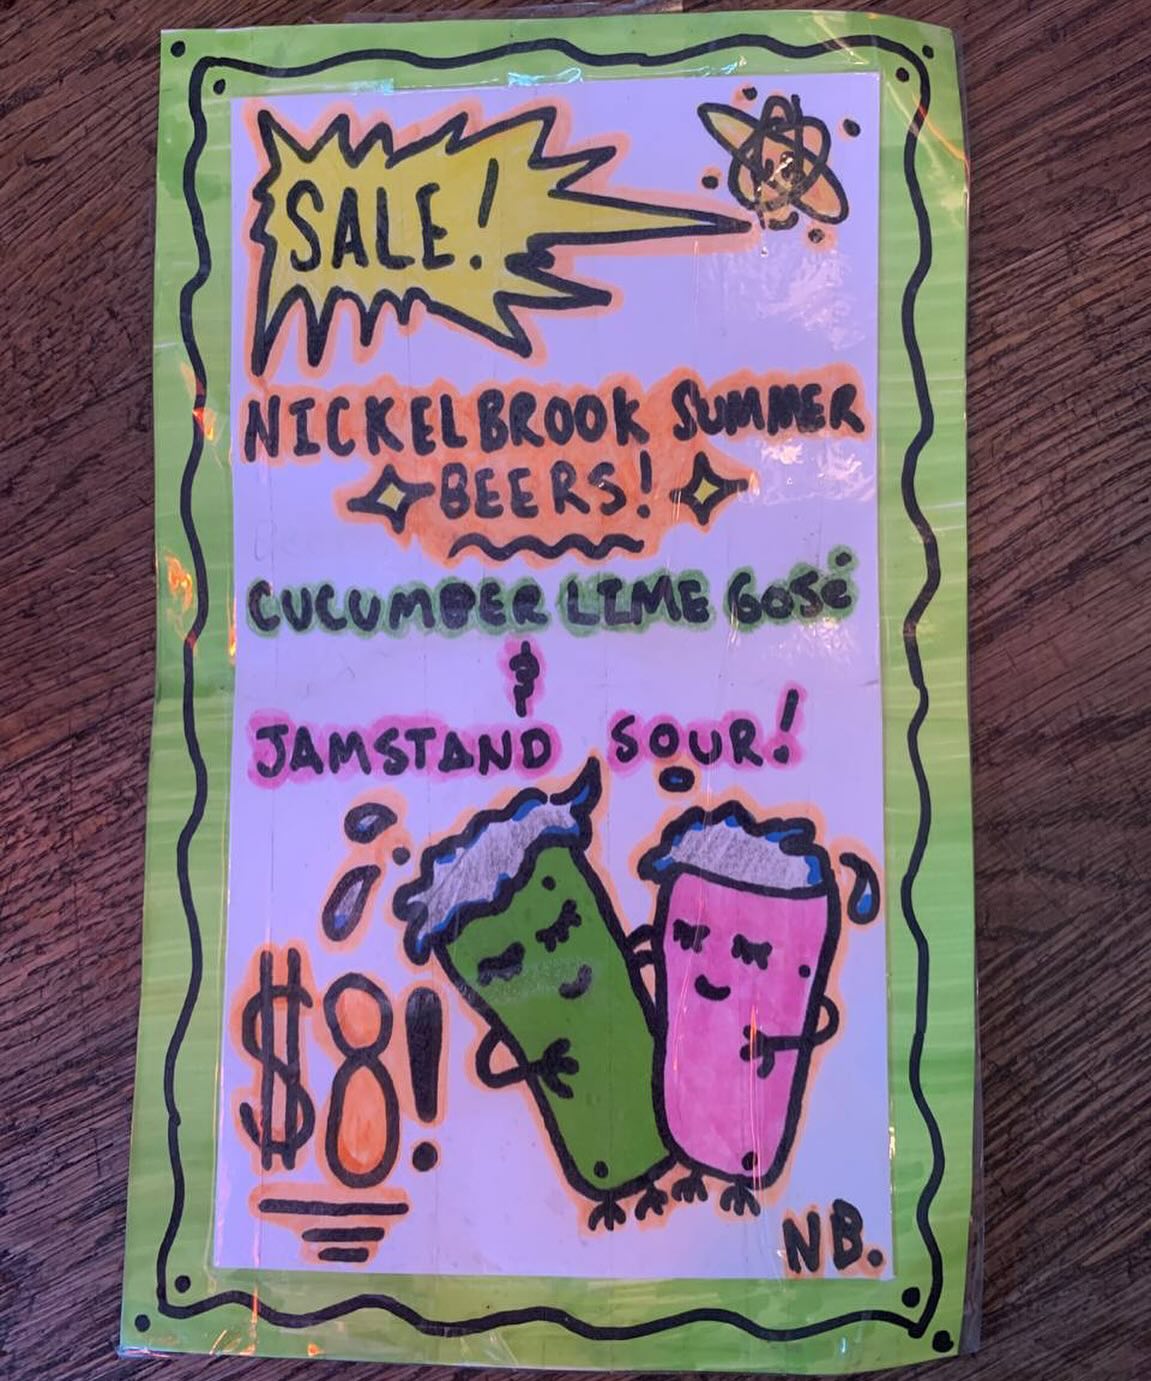 SALE!
NICKELBROOK SUMMER
BEERS!
CUCUMBER LIME GOSE
&
JAMSTAND SOUR!
$8!
NB.